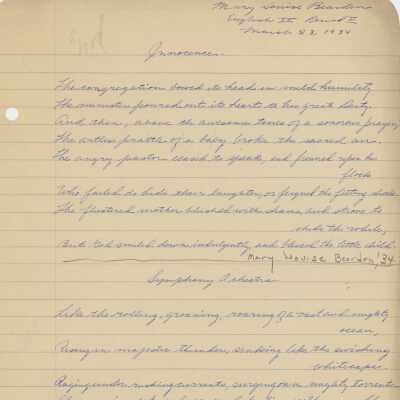 Mary Louise Bearden
English IV Band II
March 23, 1934
Good
Innocence
The congregation bowed its head in mild humility
The minister poured out its hearts to his great Deity.
And then, above the awesome tones of a sonorous prayer,
The artless prattle of a baby broke the sacred air.
The angry pastor ceased to speak, and frowned upon his
flock
Who failed to hide their laughter, or feigned the fitting shock.
The flustered mother blushed with shame, and strove to
chide the while,
But God smiled down indulgently and blessed the little child.
Mary Louise Bearden, '34
Symphony Orchestra
Like the rolling, groaning, roaring of a vast and mighty
ocean,
Rising in majestic thunder, sinking like the swishing
whitecaps.
Raging under, rushing currents, surging on in mighty torrents